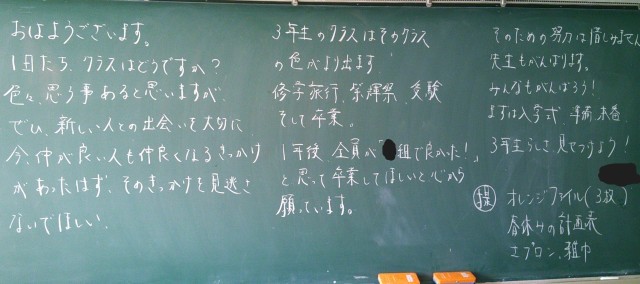 おはようございます。
1日たち、クラスはどうですか?
色々、思う事あると思いますが、
ぜひ、新しい人との出会いを大切に
今、仲が良い人も仲良くなるきっかけ
があったはず、そのきっかけを見逃さ
ないでほしい。
3年生のクラスはそのクラス
の色がより出ます
修学旅行、祭、受験
そして卒業。
1年後、全員が「組で良かった!」
と思って卒業してほしいと心から
願っています。
そのための努力は惜しみません
先生もがんばります。
みんなもがんばろう!
まずは入学式、準備、本番
3年生らしさ、見せつけよう!
提 オレンジファイル(3枚)
春休みの計画表
エプロン、雑巾